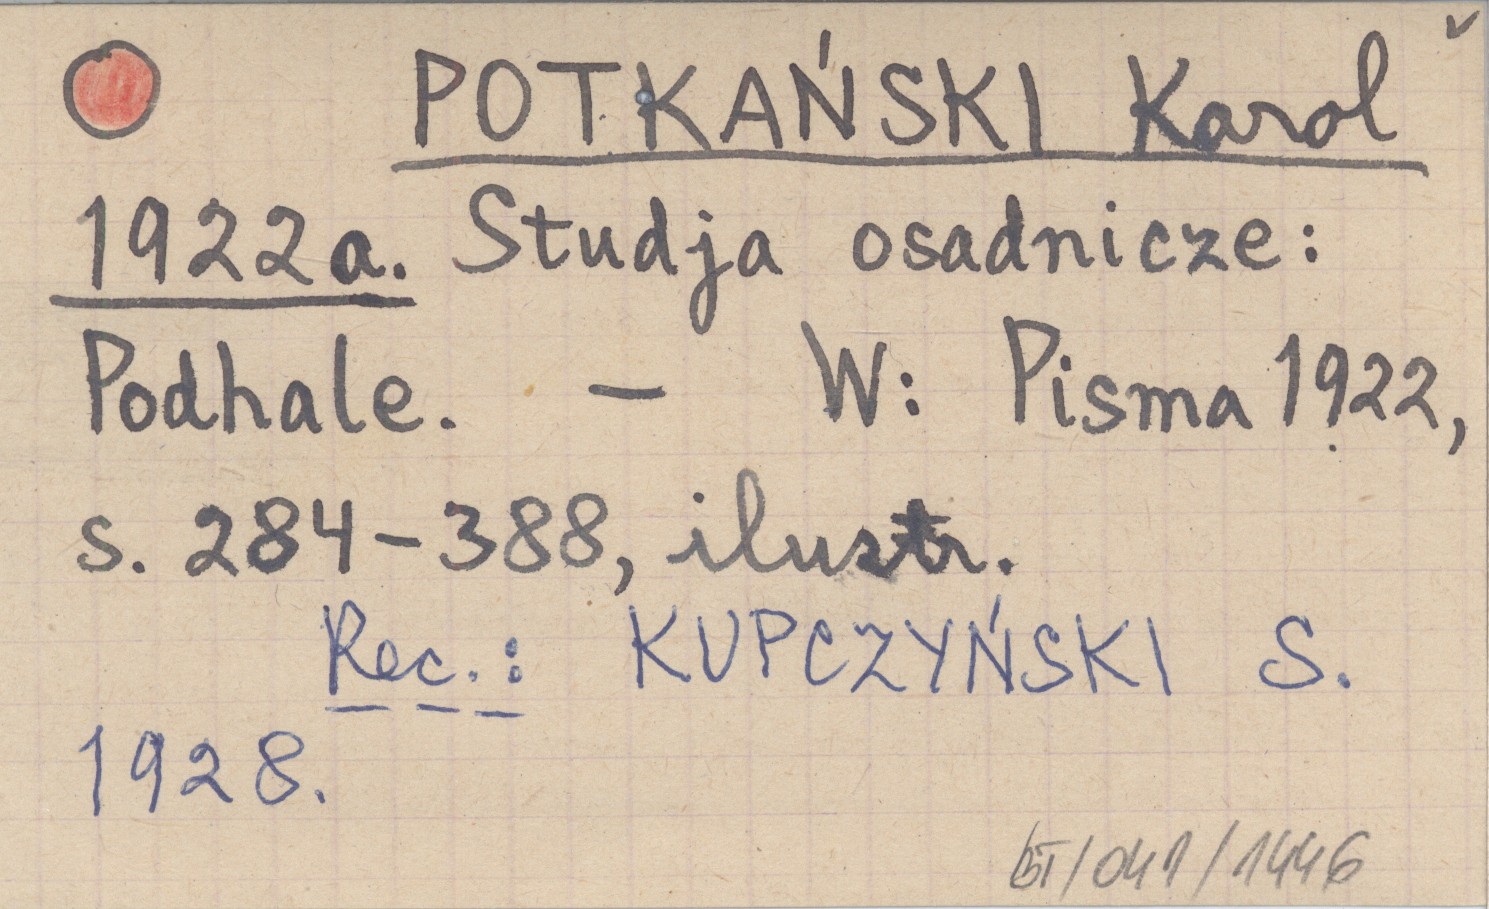 POTKAŃSKI Karol
1922a. Studja osadnicze:
Podhale. – W: Pisma 1922,
s. 284–388, ilustr.
Rec.: KUPCZYŃSKI S.
1928.
/041/1446